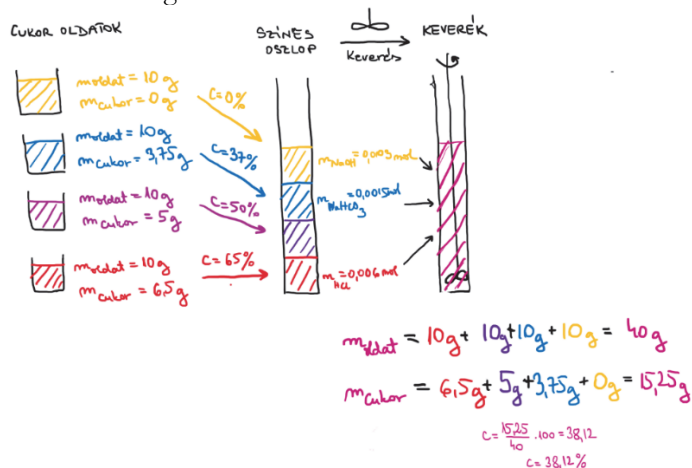 CUKOR OLDATOK
SZÍNES
OSZLOP
Keverés
KEVERÉK
moldat = 10 g
mcukor = 0 g
C=0%
moldat = 10g
mcukor = 3,75g
C=37%
moldat = 10g
mcukor = 5g
C=50%
moldat = 10g
mcukor = 6,5g
C=65%
mNaOH=0,003 mol
mNaHCO3=0,0015mol
mHCl=0,006mol
moldat = 10g + 10g + 10g + 10g = 40g
mcukor = 6,5g + 5g + 3,75g + 0g = 15,25g
C= 15,25/40 · 100 = 38,12
C= 38,12%